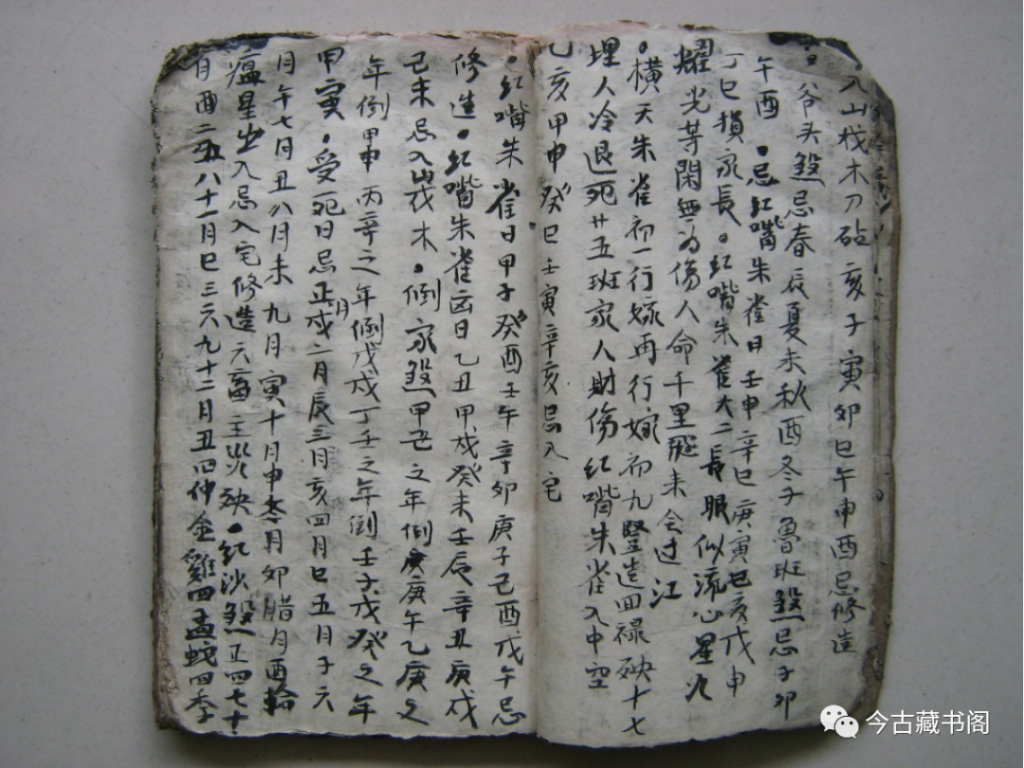 入山伐木刀砧亥子寅卯巳午申酉忌修造
。爷头煞忌春辰夏未秋酉冬子魯班煞忌子卯
午酉。忌红嘴朱雀日壬申辛巳庚寅己亥戊申
丁巳損家長。红嘴朱雀大二長眼似流心星火
耀光等閑無为傷人命千里飛来会过江
。橫天朱雀初一行嫁再行嫁初九豎造回禄殃十七
埋人冷退死廿五班家人財傷红嘴朱雀入中空
乙亥甲申癸巳壬寅辛亥忌入宅
。红嘴朱雀日甲子癸酉壬午辛卯庚子己酉戊午忌
修造。红嘴朱雀凶日乙丑甲戌癸未壬辰辛丑庚戌
己未忌入山伐木。倒家煞甲己之年倒庚庚午乙庚之
年倒甲申丙辛之年倒戊戌丁壬之年倒壬子戊癸之年
甲寅。受死日忌正月戌二月辰三月亥四月巳五月子六
月午七月丑八月未九月寅十月申冬月卯腊月酉輪
瘟星出入忌入宅修造六畜主災殃。红沙煞正四七十
月酉二五八十一月巳三六九十二月丑四仲金雞四孟蛇四季
今古藏书阁